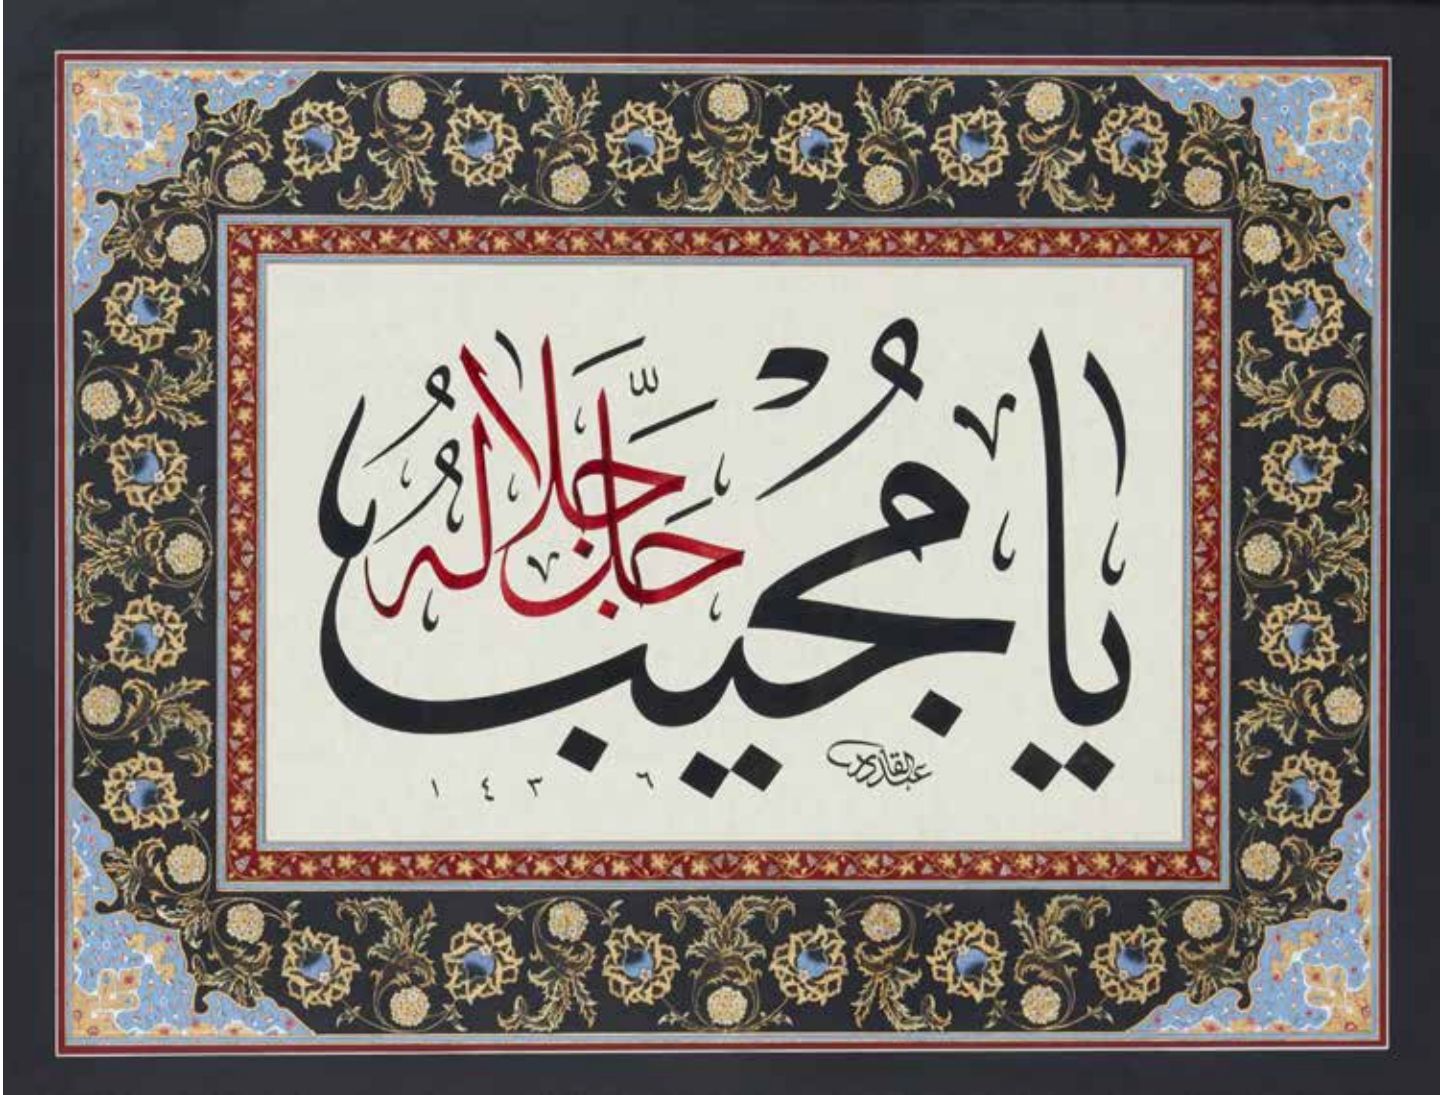 يَا مُجِيبُ
جَلَّ جَلَالُهُ
عبدالقادر
١٤٣٦